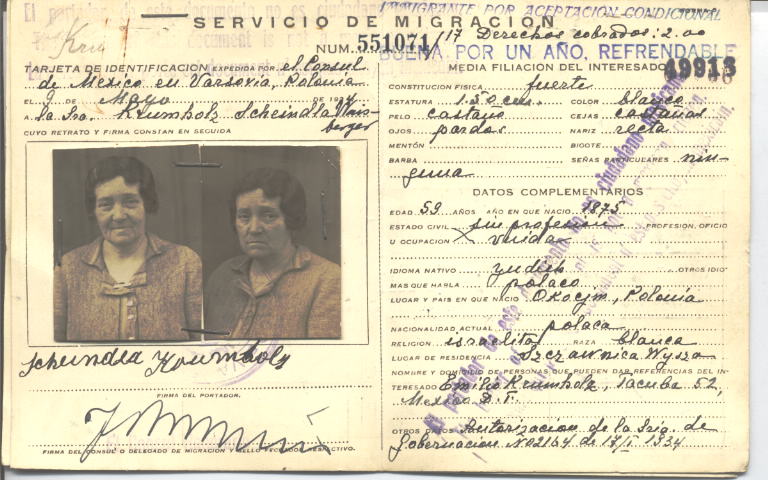 El portador de este documento no es ciudadano
INMIGRANTE POR ACEPTACION CONDICIONAL
SERVICIO DE MIGRACION
NUM. 551071/17 Derechos cobrados: 2.00
BUENA POR UN AÑO, REFRENDABLE
TARJETA DE IDENTIFICACION EXPEDIDA POR el Consul
de Mexico en Varsovia, Polonia
el 9 DE Mayo DE 1934
A la Sra. Krumholz Scheindla
berger
CUYO RETRATO Y FIRMA CONSTAN EN SEGUIDA
Scheindla Krumholz
FIRMA DEL PORTADOR,
FIRMA DEL CONSUL O DELEGADO DE MIGRACION Y SELLO RESPECTIVO.
MEDIA FILIACION DEL INTERESADO
49913
CONSTITUCION FISICA fuerte
ESTATURA 1.50 cm. COLOR blanco
PELO castaño CEJAS castañas
OJOS pardos NARIZ recta
MENTÓN BIGOTE
BARBA SEÑAS PARTICULARES nin-
guna
DATOS COMPLEMENTARIOS
EDAD 59 AÑOS AÑO EN QUE NACIO 1875
ESTADO CIVIL sin profesion PROFESION, OFICIO
U OCUPACION viuda
IDIOMA NATIVO yudish OTROS IDIO-
MAS QUE HABLA polaco
LUGAR Y PAIS EN QUE NACIO Okocim, Polonia
NACIONALIDAD ACTUAL polaca
RELIGION israelita RAZA blanca
LUGAR DE RESIDENCIA Szczawnica Wyzsza
NOMBRE Y DOMICILIO DE PERSONAS QUE PUEDEN DAR REFERENCIAS DEL IN-
TERESADO Emilio Krumholz, Tacuba 52,
Mexico D.F.
OTROS DATOS Autorizacion de la Sria. de
Gobernacion No 2164 de 17/II 1934